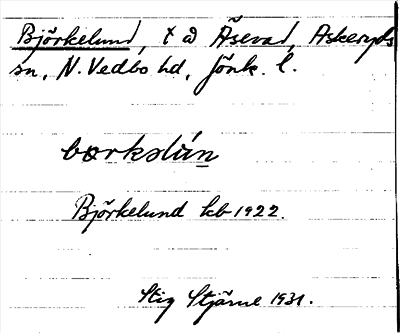 Björkelund, t å Åsevad, Askeryds
sn, N. Vedbo hd, Jönk. l.
bœrkslún
Björkelund kb 1922.
Stig Stjärne 1931.